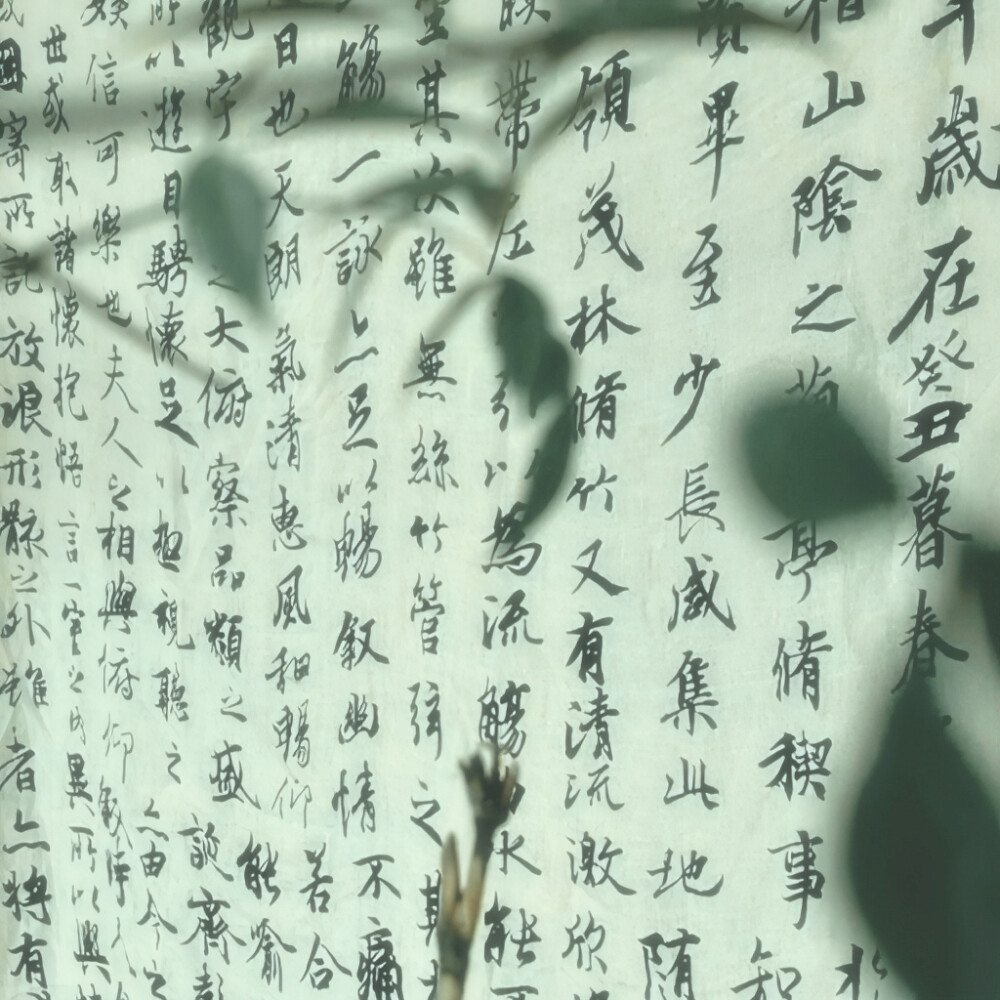 年歲在癸丑暮春
稽山陰之蘭亭脩稧事
賢畢至少長咸集此地
領茂林脩竹又有清流激欣
映帶左引以為流觴水能
坐其次雖無絲竹管弦之
觴一詠亦足以暢敘幽情不痛
日也天朗氣清惠風和暢仰若合
觀宇之大俯察品類之盛能喻
所以遊目騁懷足以極視聽之亦由今之
娛信可樂也夫人之相與俯仰
世或取諸懷抱悟言一室之內異所以興
寄所託放浪形骸之外雖者亦將有